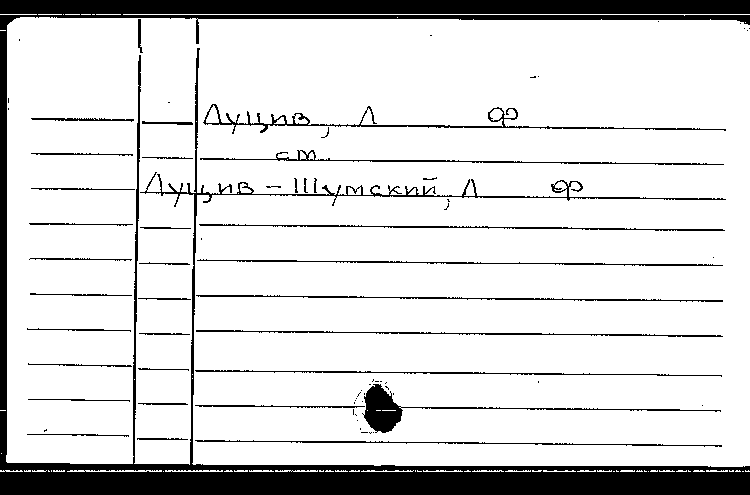 Луцив, Л ф
см.
Луцив - Шумский, Л ф